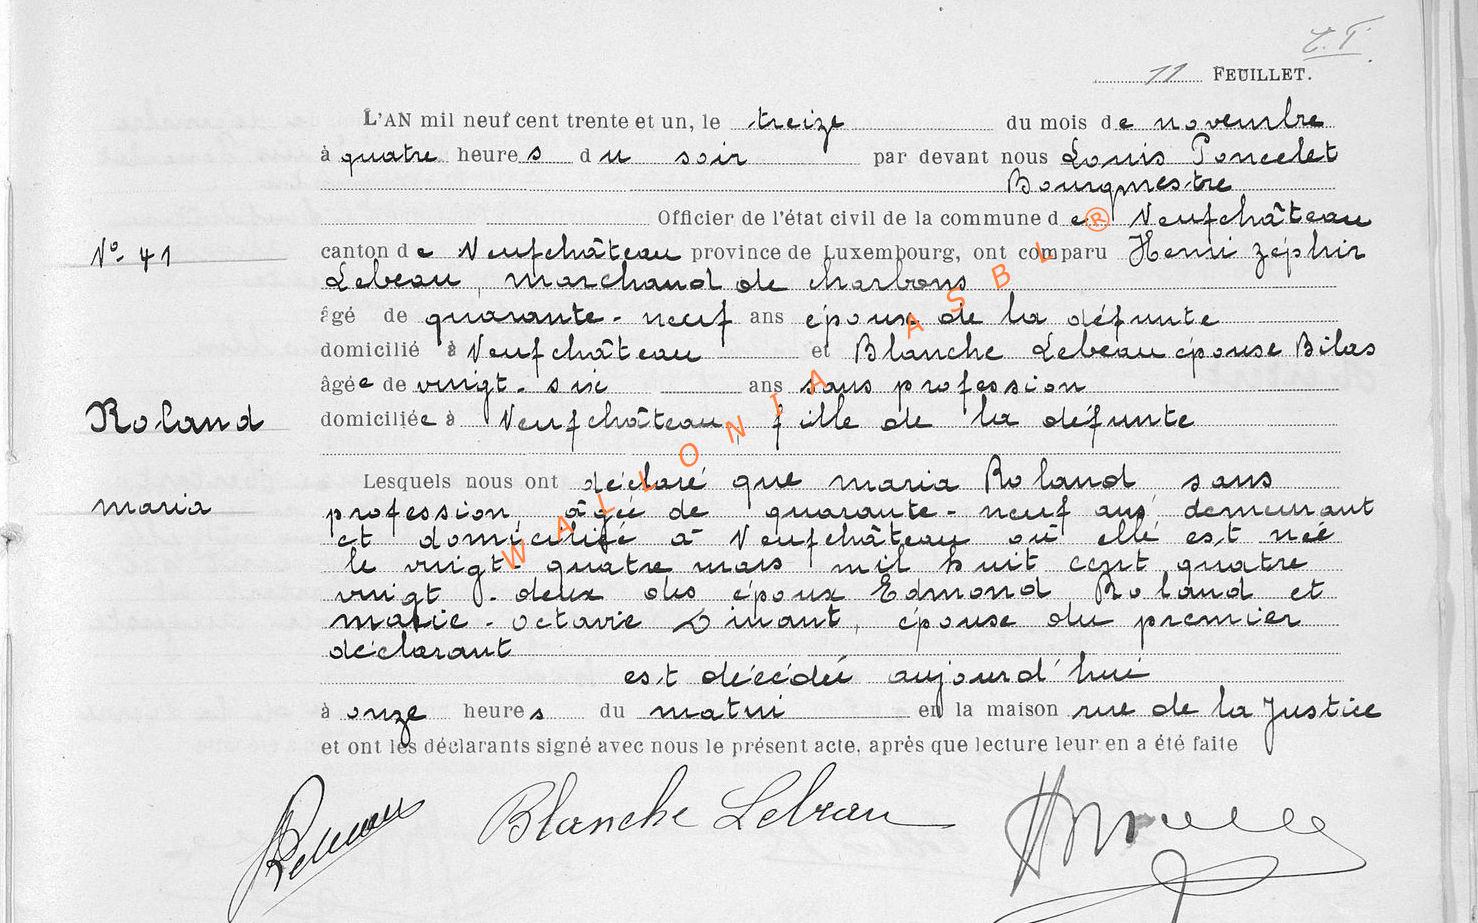 C.T.
11 FEUILLET.
L'AN mil neuf cent trente et un, le treize du mois de novembre
à quatre heures du soir par devant nous Louis Poncelet
Bourgmestre
Officier de l'état civil de la commune de Neufchâteau
N° 41
canton de Neufchâteau province de Luxembourg, ont comparu Henri Zéphir
Lebeau, marchand de charbons
âgé de quarante-neuf ans époux de la défunte
domicilié à Neufchâteau et Blanche Lebeau épouse Bilas
âgée de vingt-six ans sans profession
Roland
domiciliée à Neufchâteau, fille de la défunte
Lesquels nous ont déclaré que Maria Roland sans
Maria
profession, âgée de quarante-neuf ans demeurant
et domiciliée à Neufchâteau où elle est née
le vingt-quatre mars mil huit cent quatre
vingt-deux des époux Edmond Roland et
Marie-Octavie Dinant, épouse du premier
déclarant
est décédée aujourd'hui
à onze heures du matin en la maison rue de la Justice
et ont les déclarants signé avec nous le présent acte, après que lecture leur en a été faite
Lebeau Blanche Lebeau
WALLONIA ASBL ®